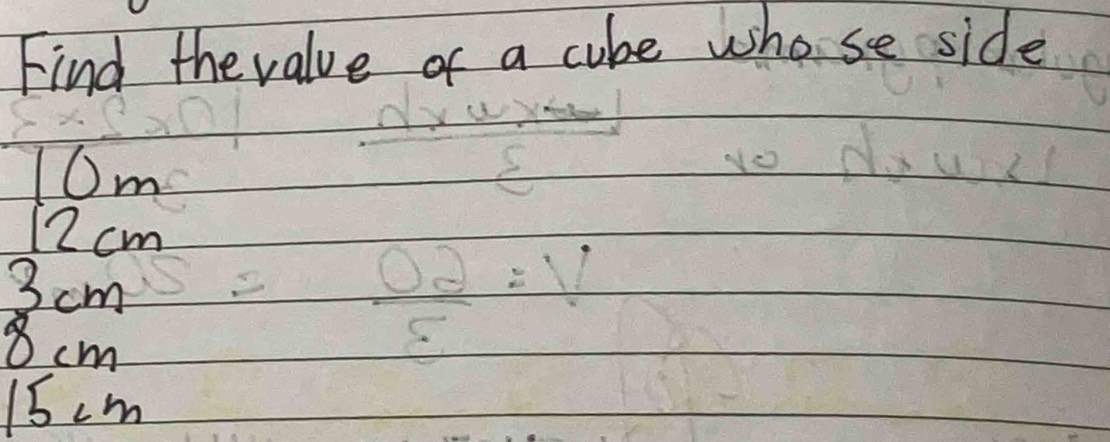 Find the value of a cube whose side
10m
12cm
3cm
8cm
15cm